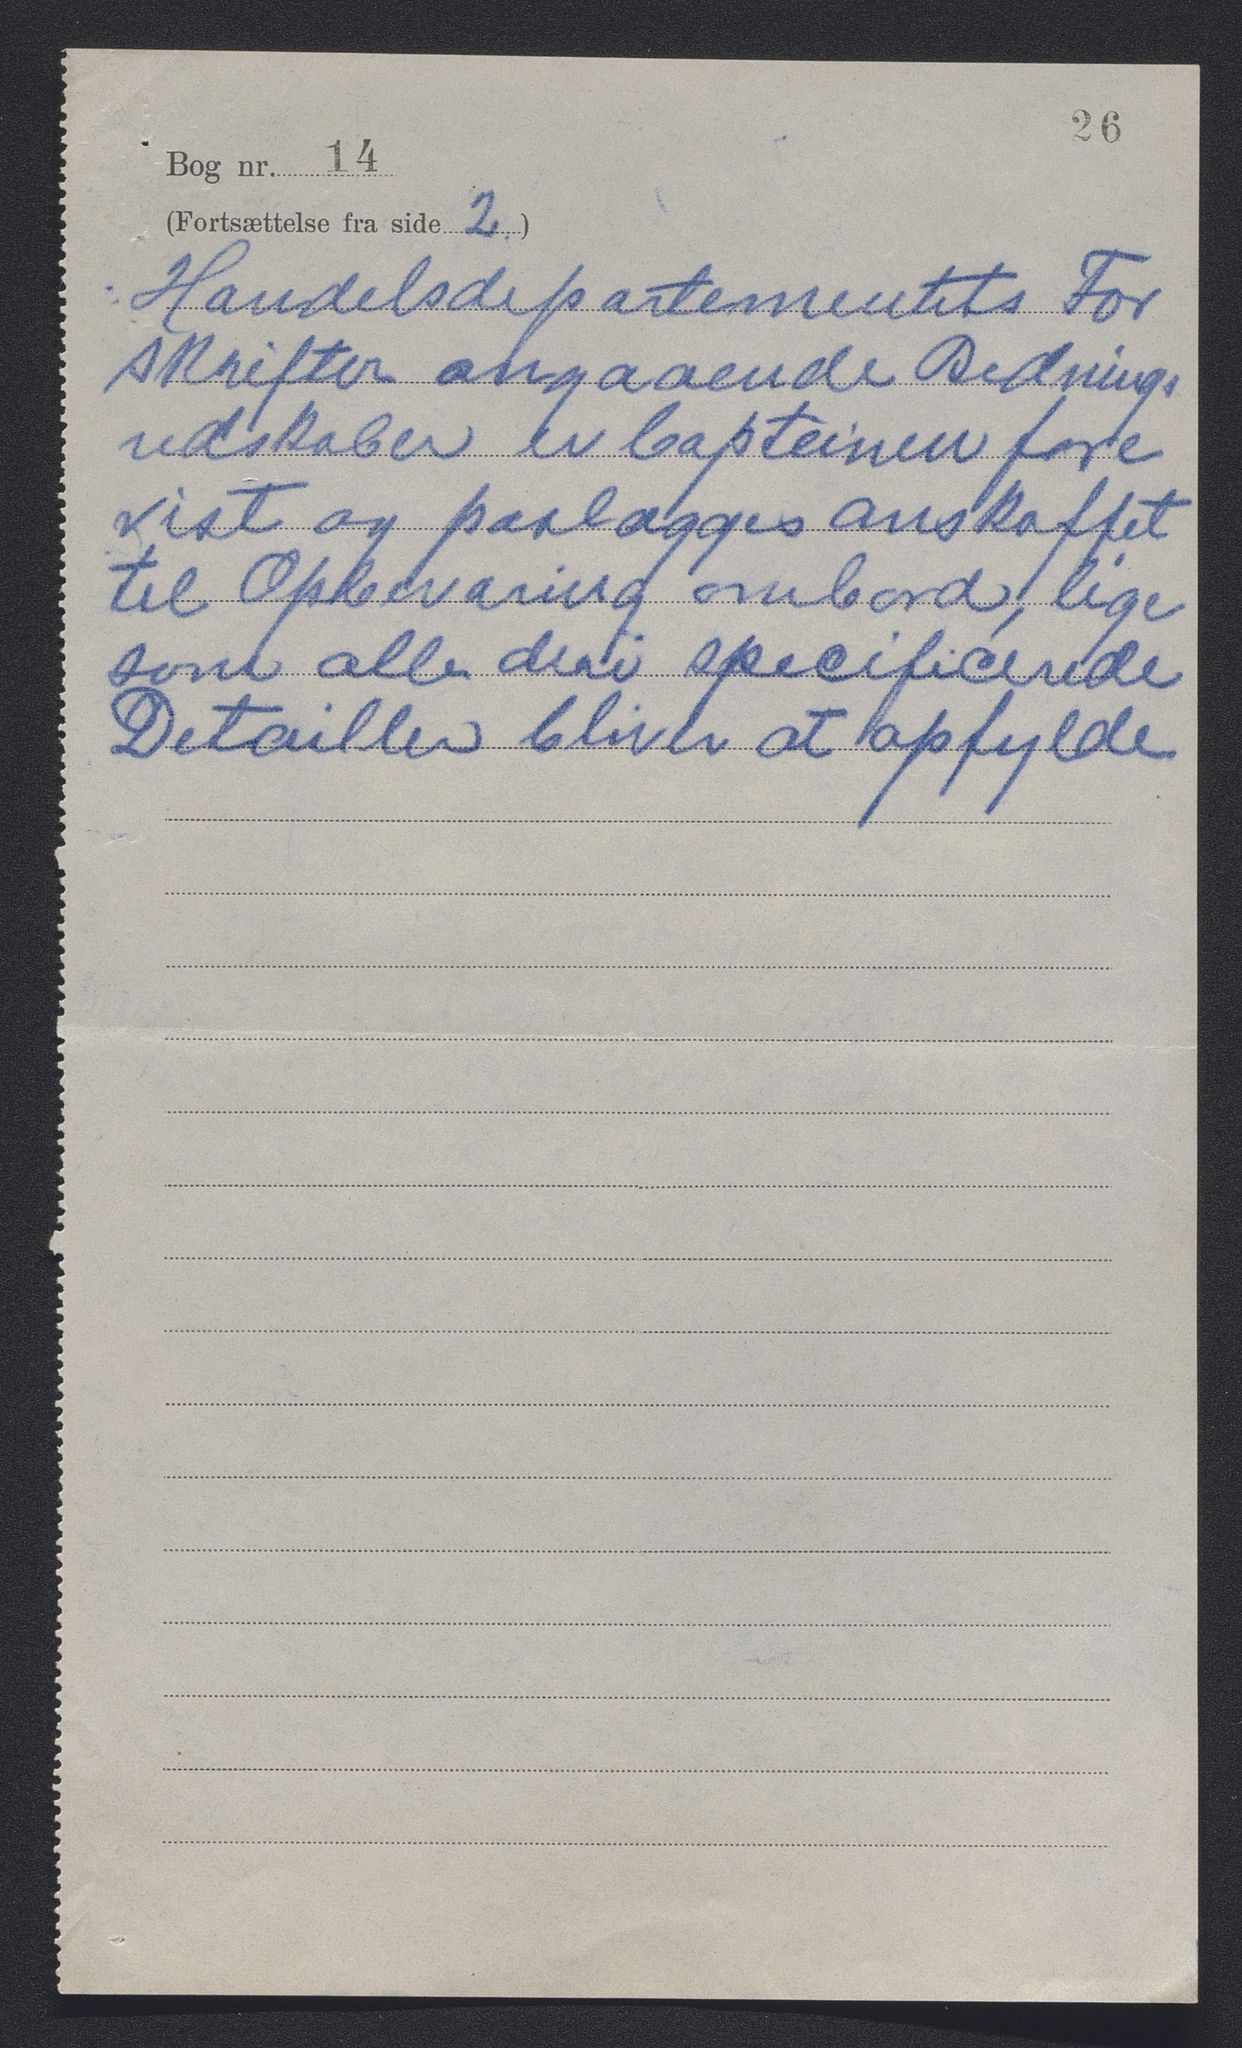 26
Bog nr. 14
(Fortsættelse fra side 2.)
Handelsdepartementets For
skrifter angaaende Rednings
redskaber er Capteinen fore
vist og paalægges anskaffet
til Opbevaring ombord, lige
som alle deri specificerede
Detailler bliver at opfylde